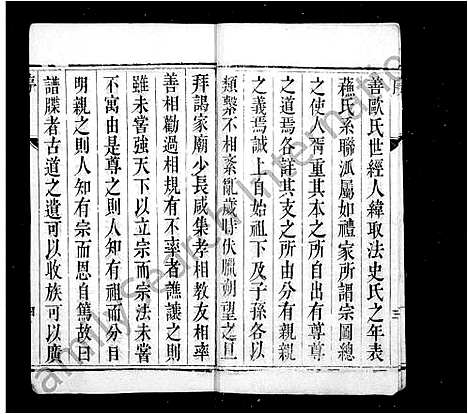 序
善歐氏世經人緯取法史氏之年表
蘓氏系聯派屬如禮家所謂宗圖總
之使人胥重其本之所自出有尊尊
之道焉各詳其支之所由分有親親
之義焉誠上自始祖下及子孫各以
類繫不相紊亂歲時伏臘朔望之旦
三
拜謁家廟少長咸集孝相教友相率
善相勸過相規有不率者譙讓之則
雖未嘗強天下以立宗而宗法未嘗
不寓由是尊之則人知有祖而分目
明親之則人知有宗而恩自篤故曰
譜牒者古道之遺可以收族可以廣
序
四
FamilySearch International